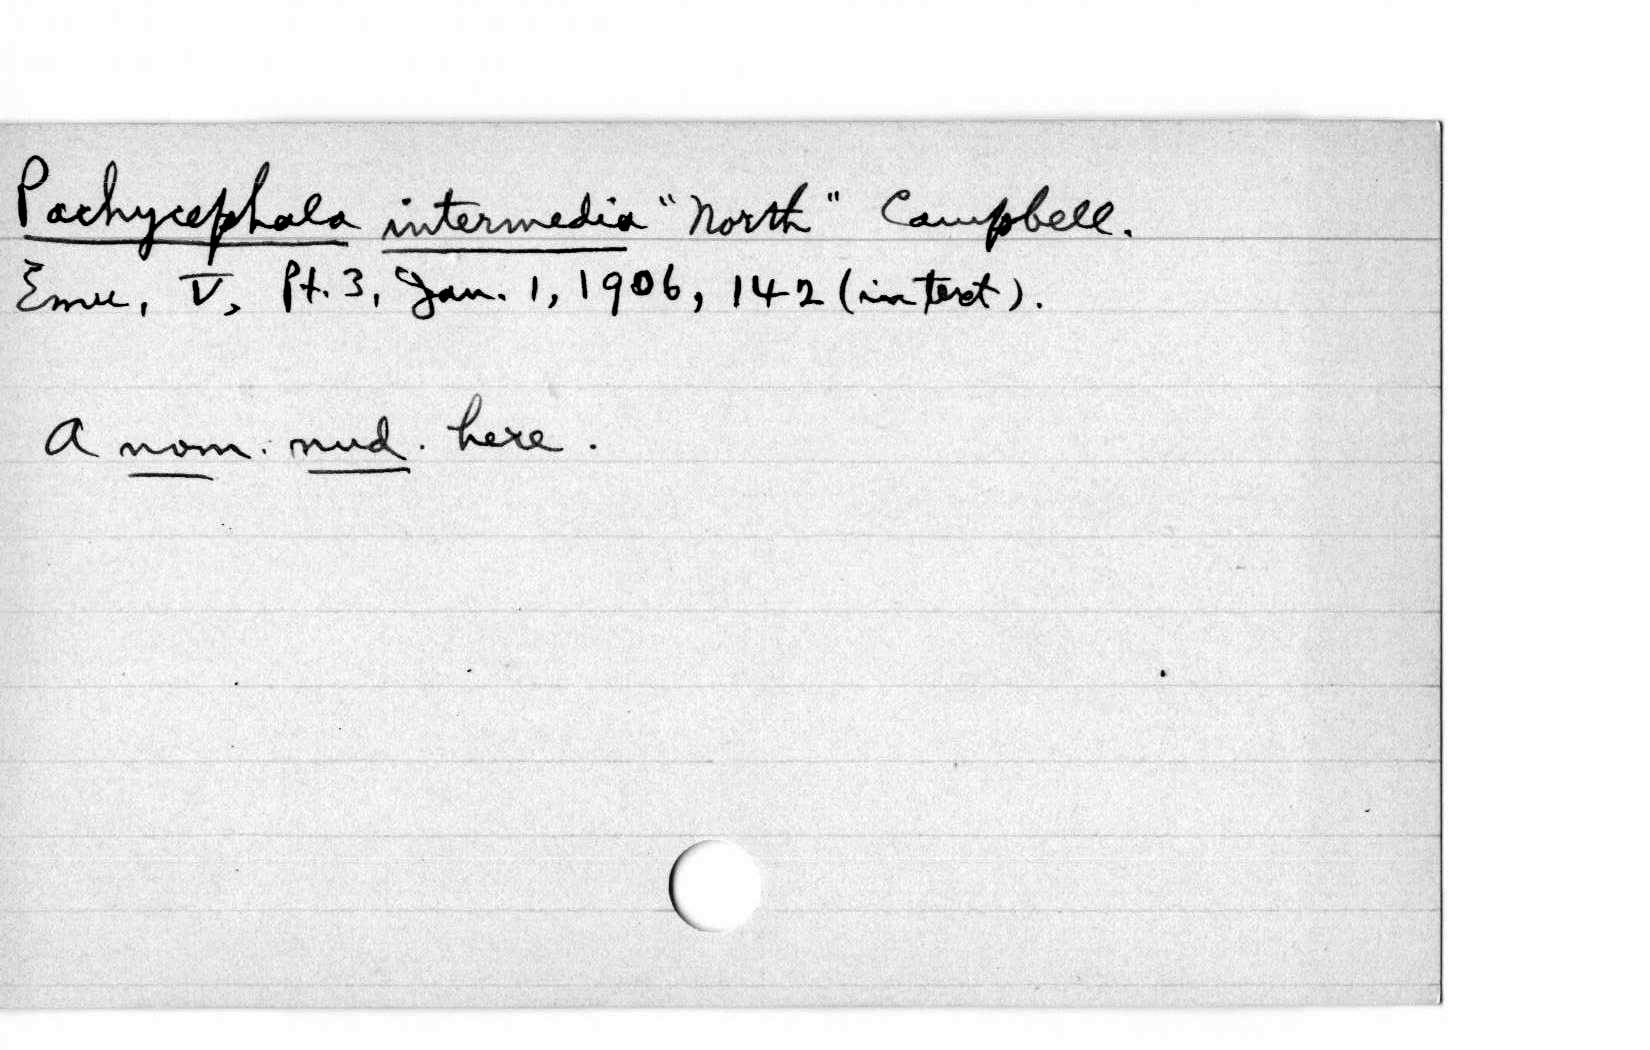 Pachycephala intermedia "North" Campbell.
Emu, V, Pt. 3, Jan. 1, 1906, 142 (in text).
A nom. nud. here.